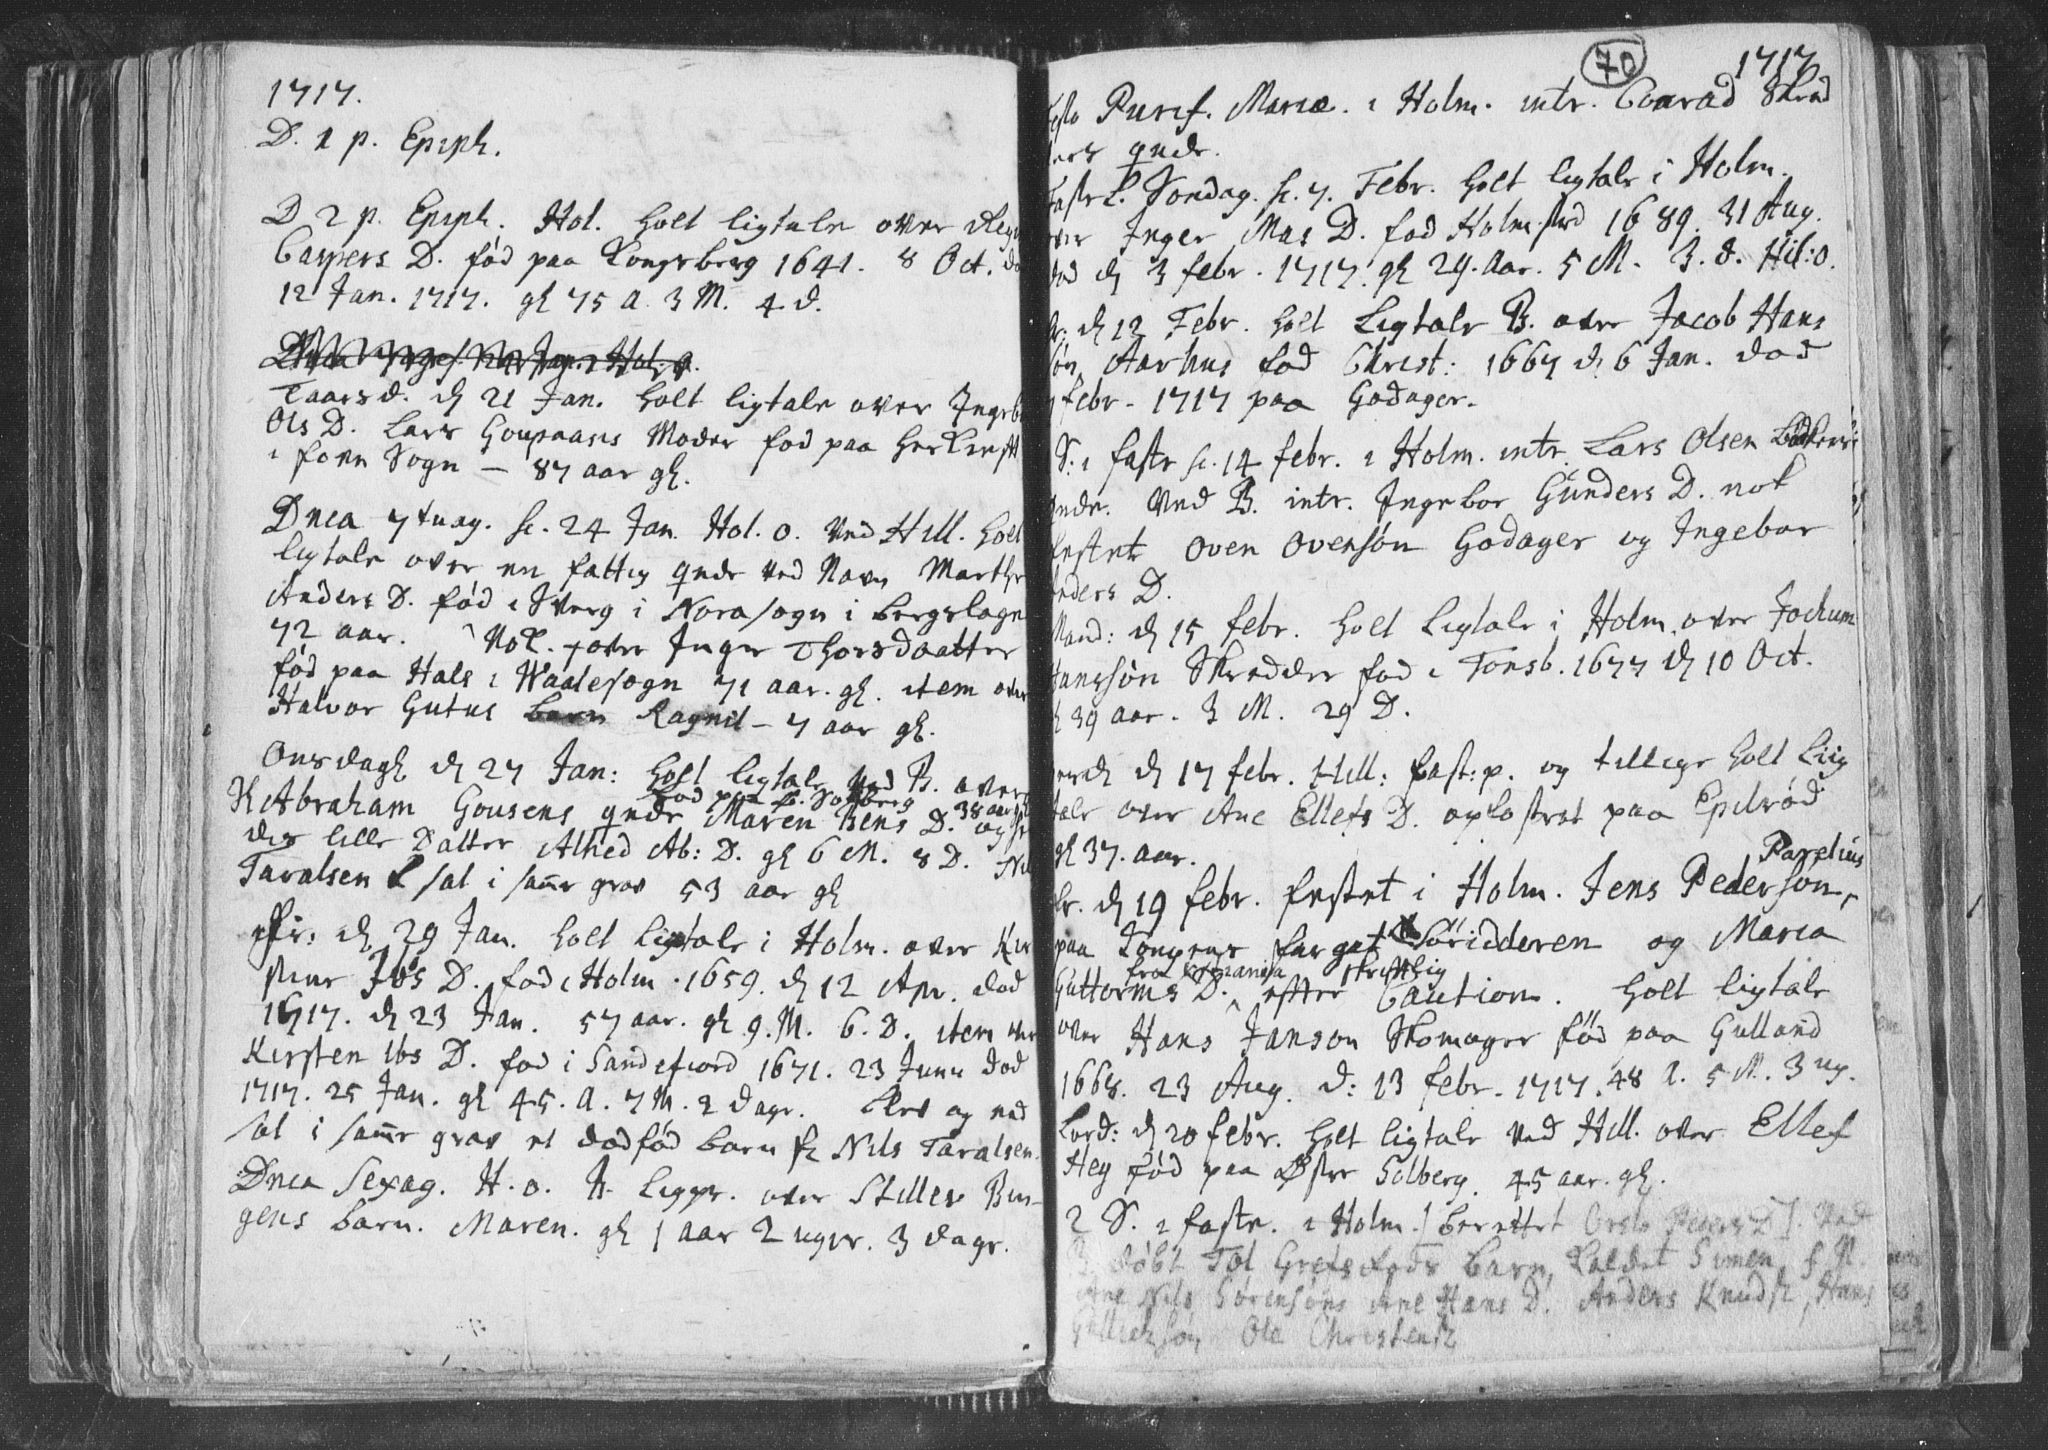 1717.
D. 1 p. Epiph.
D 2 p. Epiph. Hol. holt ligtale over
Caspers D. fød paa Kongsberg 1641. 8 Oct.
12 Jan. 1717. gl 75 a. 3 M. 4 d.
Jan. Hol. o.
d. 21 Jan. holt ligtale over
Ols D. Lars Moder fød paa
i Sogn — 87 aar gl.
Dnca 7tuag. sc. 24 Jan. Hol. o. ved Hill. holt
ligtale over en fattig qnde ved Navn Marthe
Anders D. fød i Sverg i Nora sogn i bergslagn
72 aar. Nok. over Inger Thorsdaatter
fød paa Hals i Waalesogn 71 aar. gl. item over
Halvor Gutus barn Ragnil – 7 aar gl.
Onsdagl d. 27 Jan: holt ligtale ved B. over
fød paa S. Solberg 38 aar
Abraham Gousens qnde Maren Bens D. og
des lille Datter Alhed Ab: D. gl 6 M. 8 D.
Taralsen sat i samme grav 53 aar gl
d. 29 Jan. holt ligtale i Holm. over Kir
stine Ibs D. fød i Holm. 1659. d. 12 Apr. død
1717. d. 23 Jan. 57 aar. gl 9. M. 6. D. item over
Kirsten Ibs D. fød i Sandefiord 1671. 23 Juni død
1717. 25 Jan. gl 45. a. 7 M. 2 dage. blev og ned
sat i samme grav et dødfød barn Nils Taralsen.
Dnca Sexag. H. o. B. over
barn. Maren. gl 1 aar 2 uger. 3 dage.
70
1717
Purif. Mariæ. i Holm. intr. Conrad Skræd
ers qnde.
Søndag. sc. 7. Febr. holt ligtale i Holm.
over Inger Mas D. fød Holmestrd 1689. 31 Aug.
død d. 3 febr. 1717. gl 29. Aar. 5 M. 3. d. Hil: o.
d. 12 Febr. holt Ligtale B. over Jacob Hans
søn Aarhus fød Christ: 1667 d. 6 Jan. død
febr. 1717 paa Godager.
S. i faste sc. 14 febr. i Holm. intr. Lars Olsen
qnde. Ved B. intr. Ingebor Gunders D. nok
festet Oven Ovensøn Godager og Ingebor
D.
Mand: d. 15 febr. holt Ligtale i Holm. over Jochum
Hanssøn Skredder fød i Tonsb. 1677 d. 10 Oct.
39 aar. 3 M. 29 D.
d. 17 febr. Hill: fast: p. og tillige holt Liig
tale over Ane Ellefs D. opfostret paa
gl 37. aar.
Parelius
d. 19 febr. festet i Holm. Jens Pedersøn,
paa Kongens og Maria
fra skriftlig
Guttorms D. efter Caution. holt ligtale
over Hans Janson Skomager fød paa Gulland
1668. 23 Aug. d: 13 febr. 1717. 48 a. 5 M. 3 ug.
Lørd: d. 20 febr. holt ligtale ved Hill. over Ellef
Hey fød paa Østre Solberg. 45 aar. gl.
2 S. i faste. i Holm. berettet Peders D. Ved
B. døbt barn, Kaldet Simen. f
Ane Nils Sørensøns Ane Hans D. Anders Knuds, Hans
Ole Christens